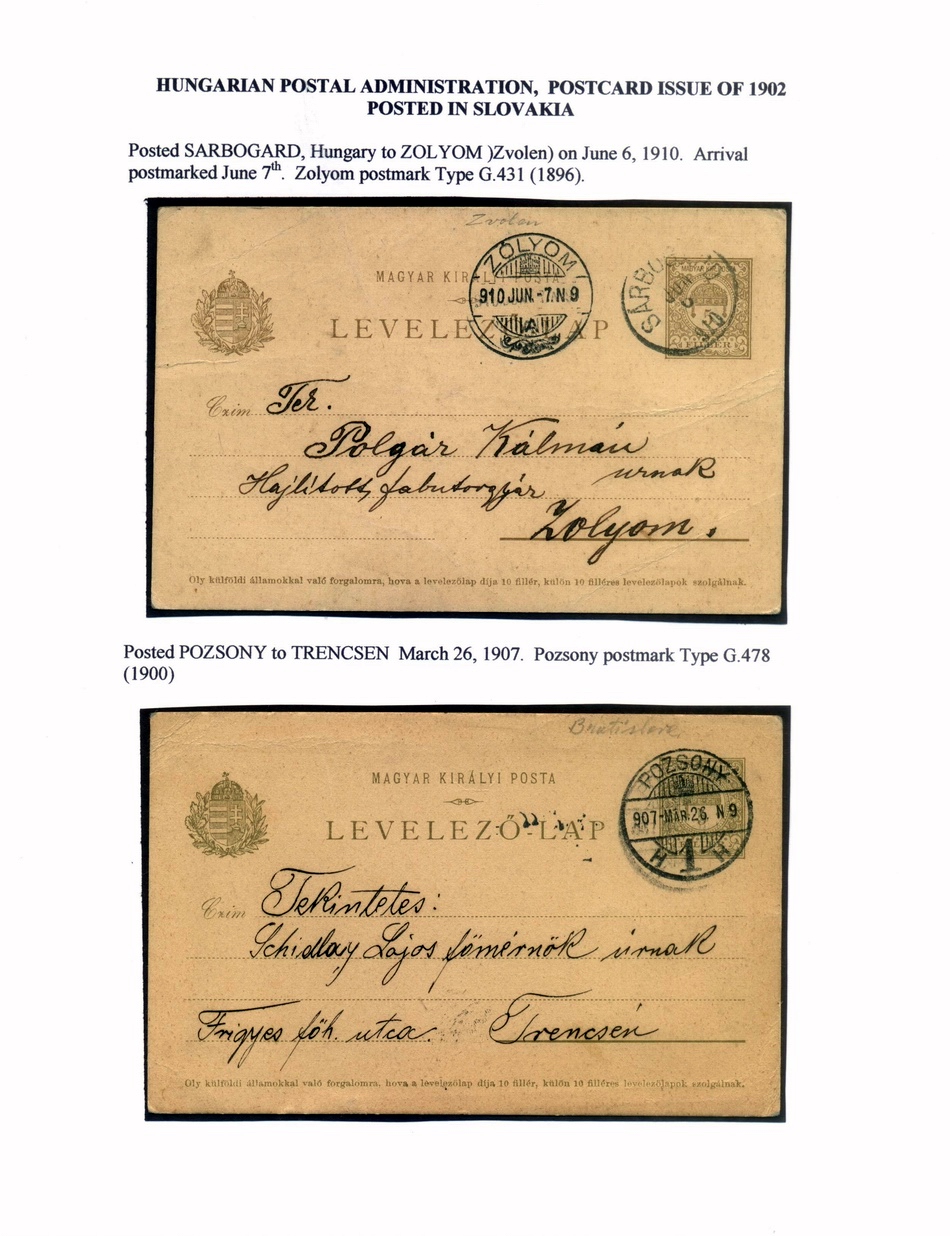 HUNGARIAN POSTAL ADMINISTRATION, POSTCARD ISSUE OF 1902
POSTED IN SLOVAKIA
Posted SARBOGARD, Hungary to ZOLYOM )Zvolen) on June 6, 1910. Arrival
postmarked June 7th. Zolyom postmark Type G.431 (1896).
Zvolen
MAGYAR KIRÁLYI POSTA
ZÓLYOM
910 JUN.-7.N 9
LEVELEZ AP
SÁRBO
FILLÉR
Czim Ter.
Polgár Kálmán
urnak
Hajlitott fabutorgyár
Zolyom.
Oly külföldi államokkal való forgalomra, hova a levelezőlap díja 10 fillér, külön 10 filléres levelezőlapok szolgálnak.
Posted POZSONY to TRENCSEN March 26, 1907. Pozsony postmark Type G.478
(1900)
Bratislava
MAGYAR KIRÁLYI POSTA
POZSONY
907-MÁR.26. N 9
H 1 H
LEVELEZŐ-LAP
Czim Tekintetes:
Schidlay Lajos főmérnök úrnak
Frigyes főh. utca. Trencsén
Oly külföldi államokkal való forgalomra, hova a levelezőlap díja 10 fillér, külön 10 filléres levelezőlapok szolgálnak.